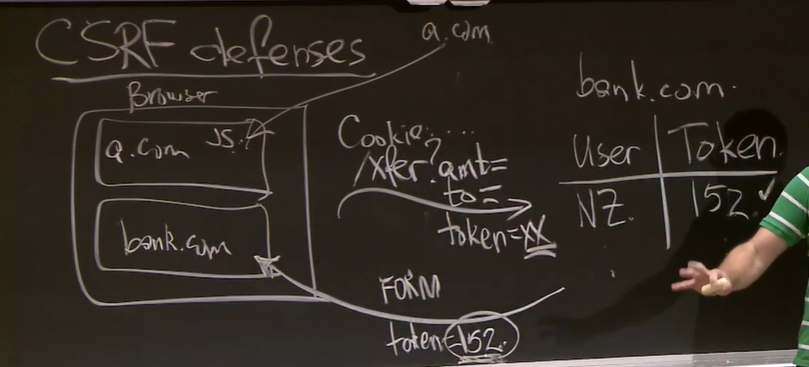 CSRF defenses
a.com
Browser
a.com JS.
bank.com
Cookie:....
/xfer?amt=
to=
token=XX
FORM
token=152.
bank.com.
User Token.
NZ. 152.✓